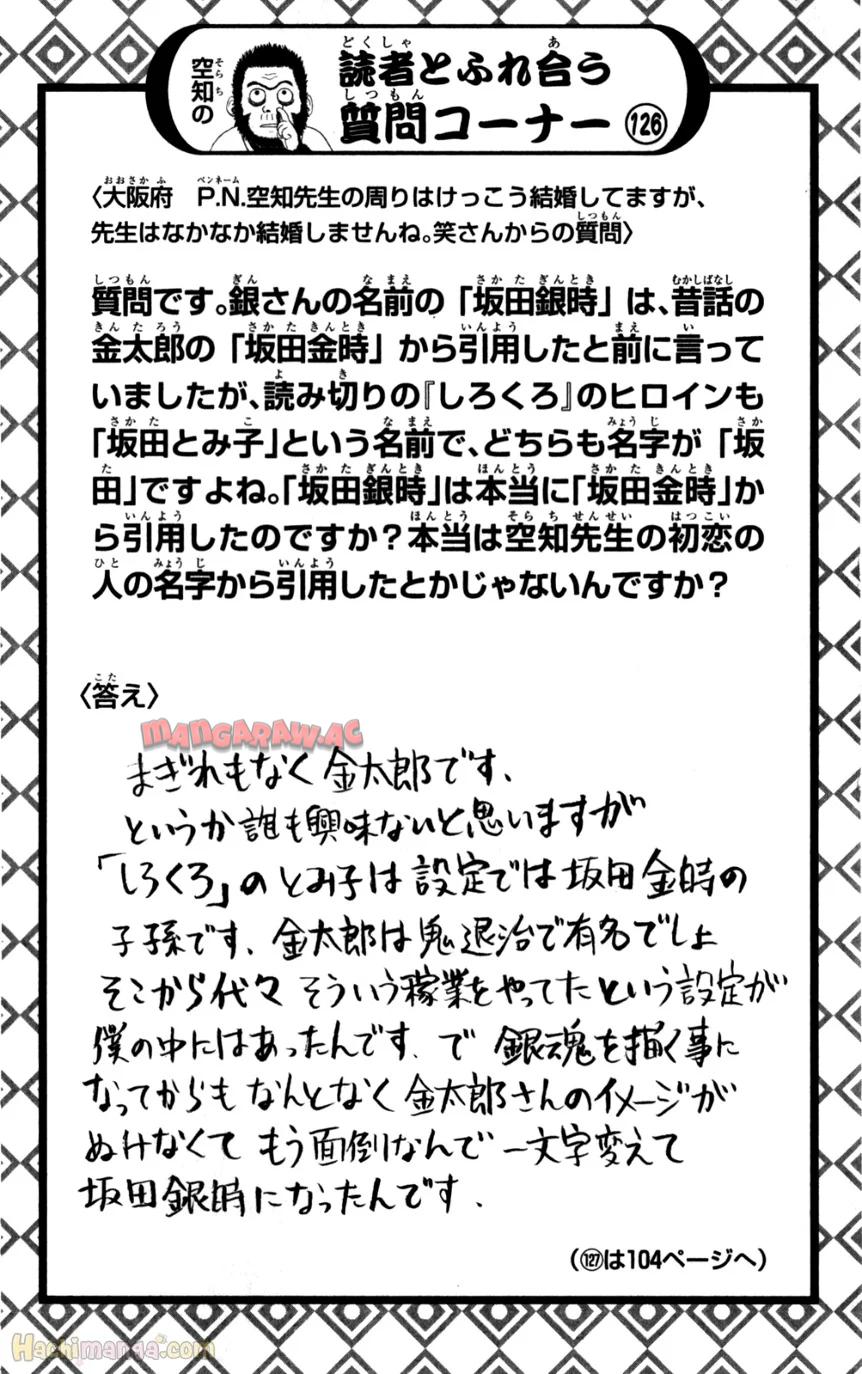 空知の
読者とふれ合う
質問コーナー 126
〈大阪府　P.N.空知先生の周りはけっこう結婚してますが、
先生はなかなか結婚しませんね。笑さんからの質問〉
質問です。銀さんの名前の「坂田銀時」は、昔話の
金太郎の「坂田金時」から引用したと前に言って
いましたが、読み切りの『しろくろ』のヒロインも
「坂田とみ子」という名前で、どちらも名字が「坂
田」ですよね。「坂田銀時」は本当に「坂田金時」か
ら引用したのですか？本当は空知先生の初恋の
人の名字から引用したとかじゃないんですか？
〈答え〉
MANGARAW.AC
まぎれもなく金太郎です、
というか誰も興味ないと思いますが
「しろくろ」のとみ子は設定では坂田金時の
子孫です、金太郎は鬼退治で有名でしょ
そこから代々そういう稼業をやってたという設定が
僕の中にはあったんです、で 銀魂を描く事に
なってからもなんとなく金太郎さんのイメージが
ぬけなくて もう面倒なんで 一文字変えて
坂田銀時になったんです、
（127は104ページへ）
Hachimanga.com